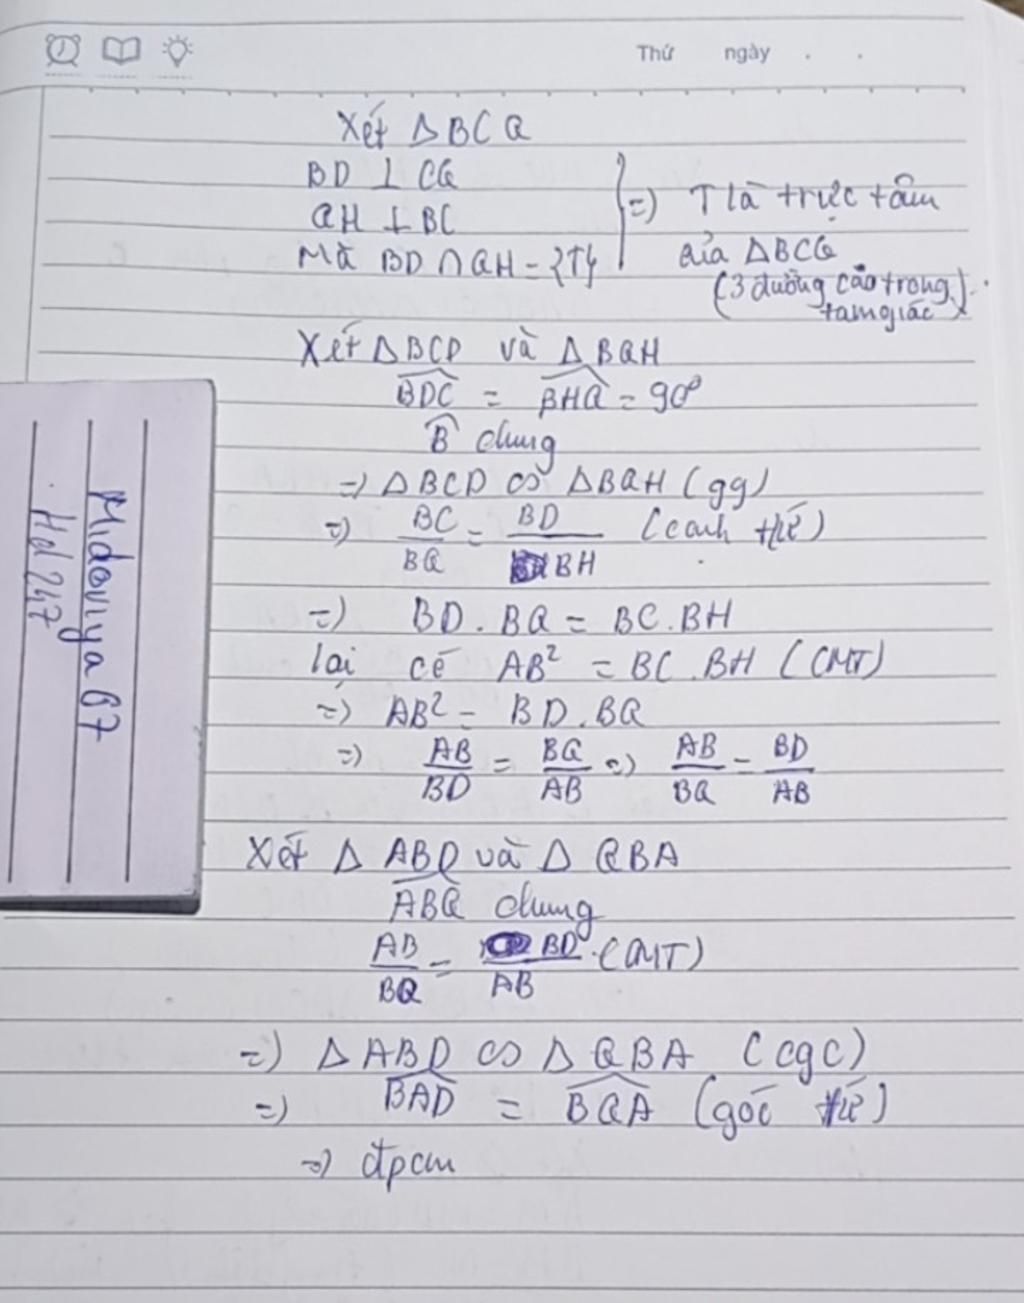 Thứ ngày . .
Xét Δ BCQ
BD ⊥ CQ
QH ⊥ BC
Mà BD ∩ QH = {T}
=) T là trực tâm
của ΔBCQ
(3 đường cao trong
tam giác)
Xét ΔBCD và Δ BQH
BDC = BHQ = 90°
B chung
=) ΔBCD ∽ ΔBQH (gg)
=) BC/BQ = BD/BH (cạnh tứ)
=) BD . BQ = BC . BH
lại có AB² = BC . BH (CMT)
=) AB² = BD . BQ
=) AB/BD = BQ/AB =) AB/BQ = BD/AB
Xét Δ ABD và Δ QBA
ABQ chung
AB/BQ = BD/AB (CMT)
=) Δ ABD ∽ Δ QBA (cgc)
=) BAD = BQA (góc tứ)
=) đpcm
Midoriya 67
Hd 247